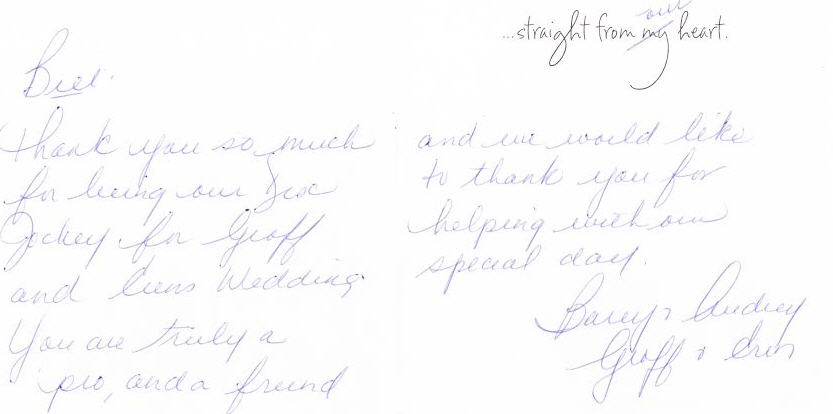 Bill.
Thank you so much
for being our Disc
Jockey for Groff
and Erins Wedding
You are truly a
pro, and a friend
our
...straight from my heart.
and we would like
to thank you for
helping with our
special day.
Barry & Audrey
Groff & Erin